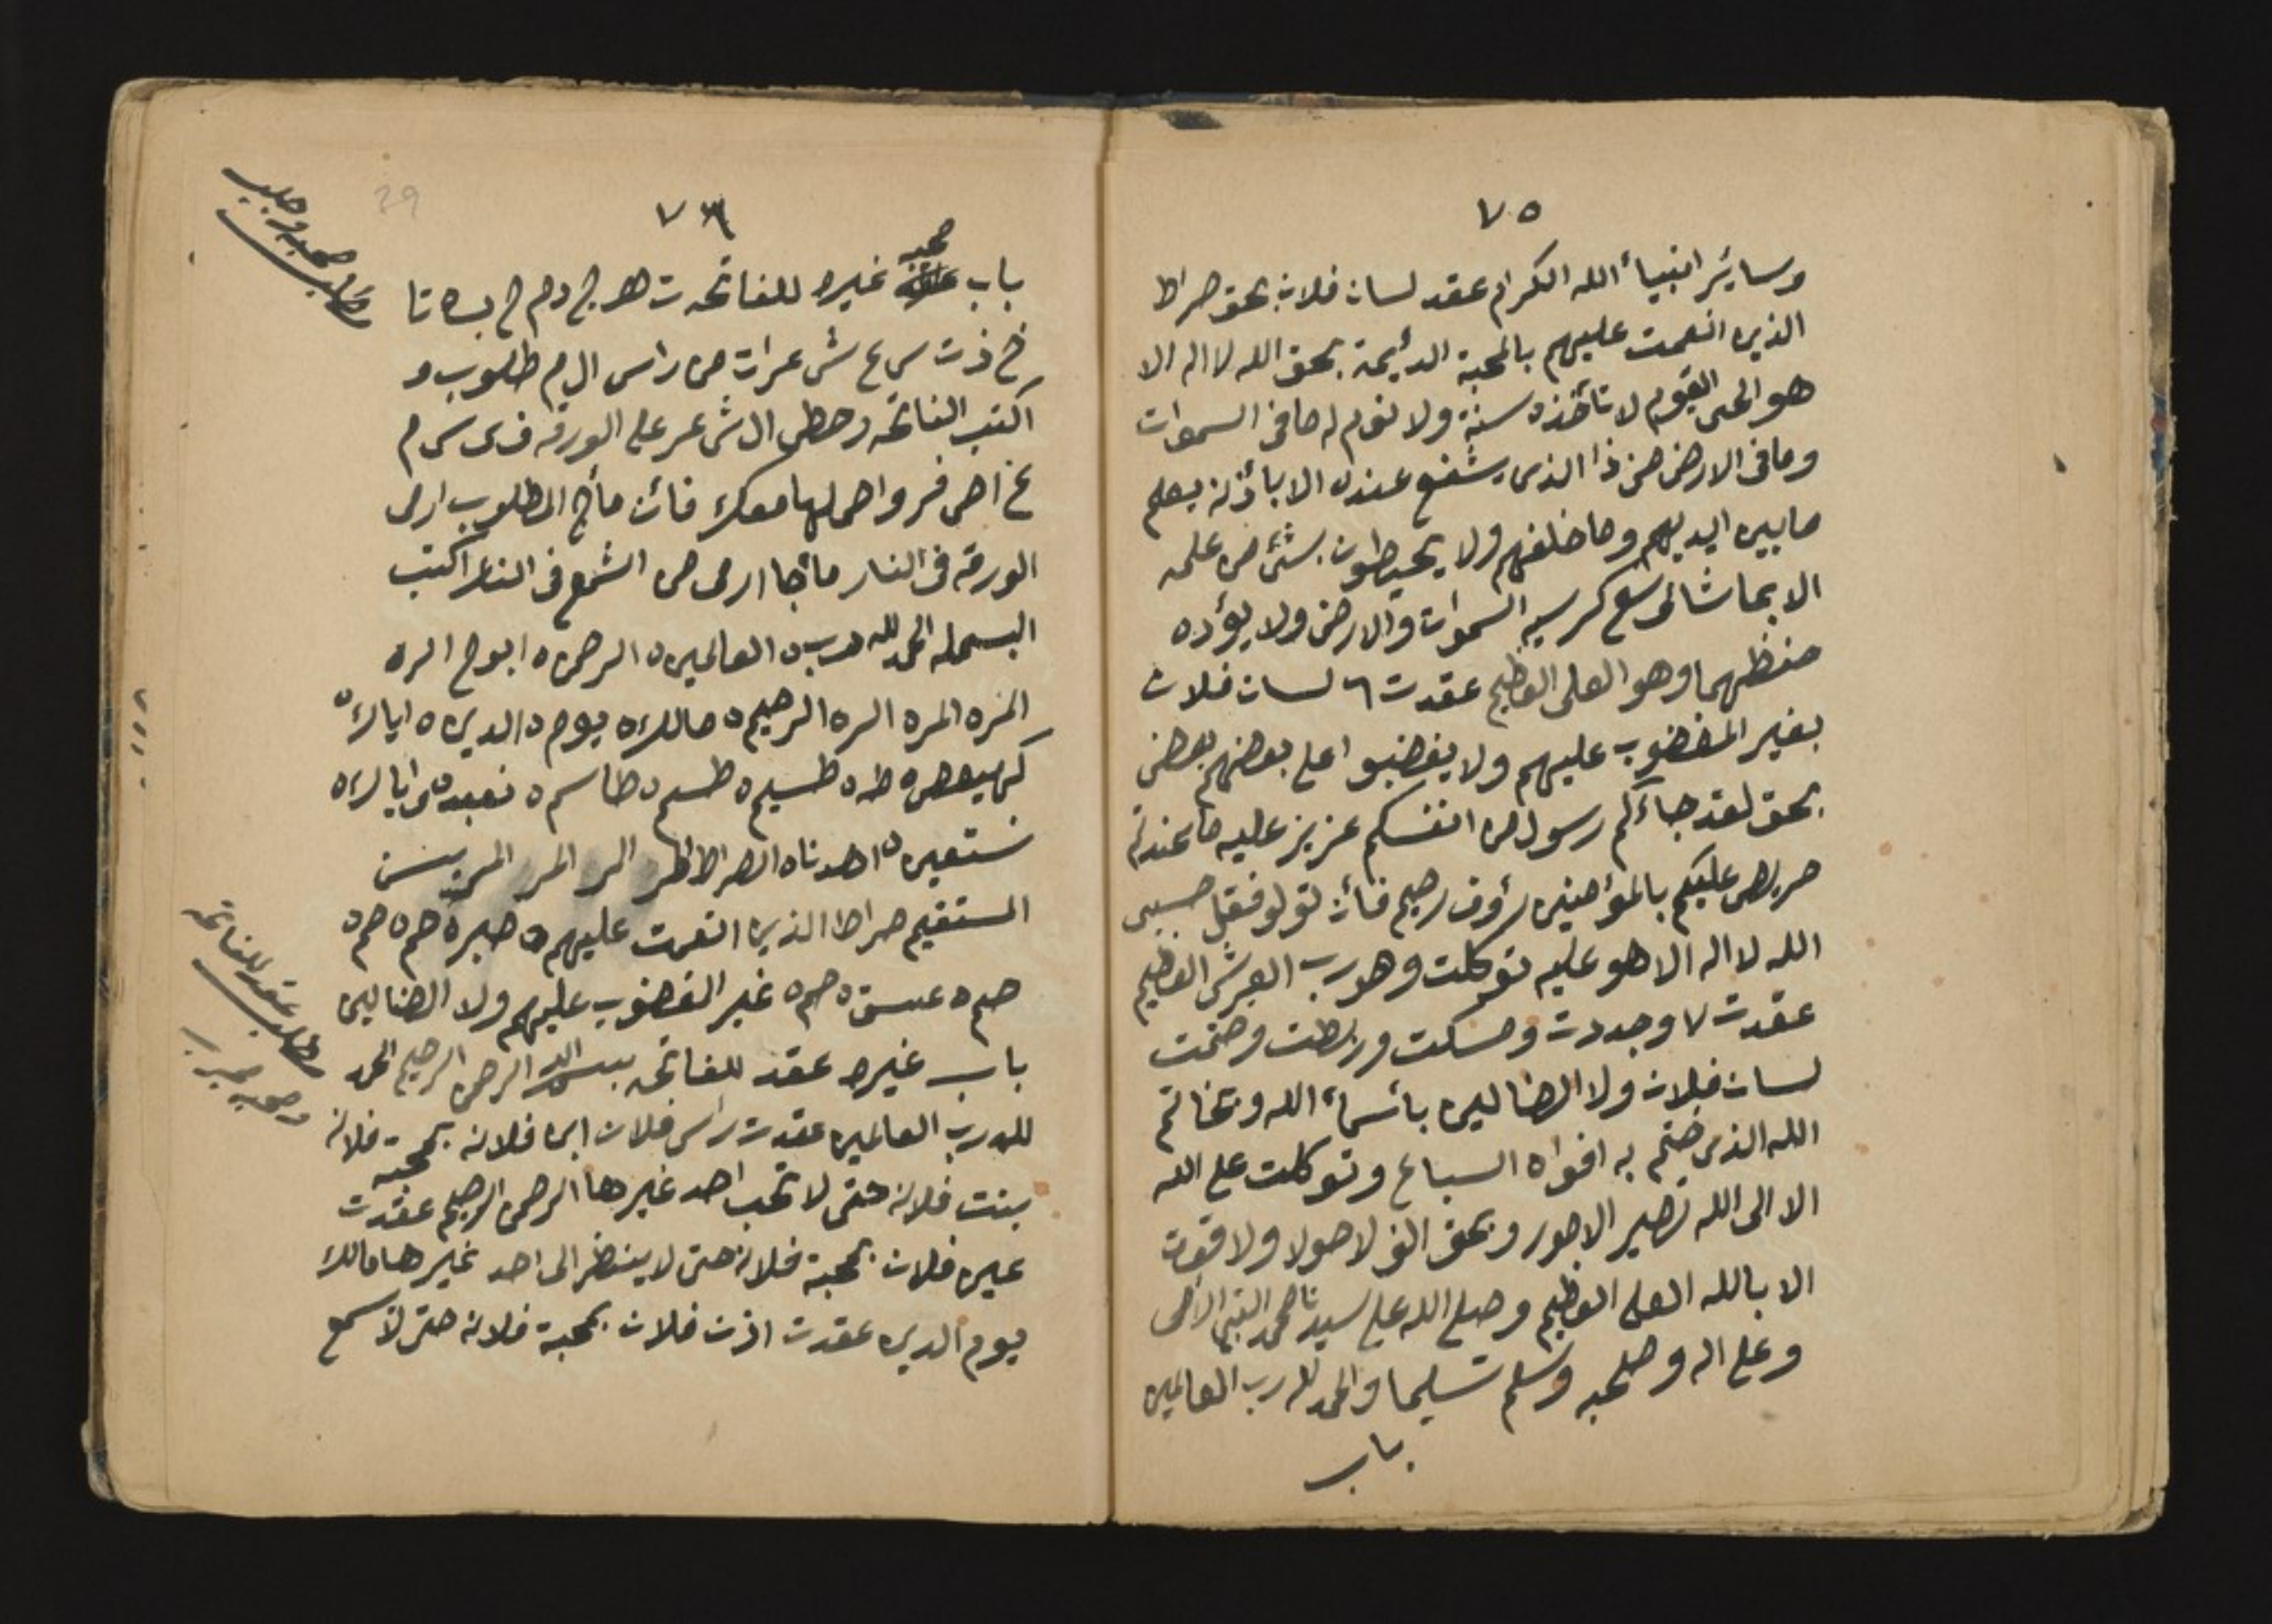 ٧٥
وسائر انبياء الله الكرام عقد لسان فلان بحق صراط
الذين انعمت عليهم بالمحبة الدئيمة بحق الله لا اله الا
هو الحى القيوم لا تأخذه سنة ولا نوم له ما فى السموات
وما فى الارض من ذا الذى يشفع عنده الا بأذنه يعلم
ما بين ايديهم وما خلفهم ولا يحيطون بشئ من علمه
الا بما شا وسع كرسيه السموات والارض ولا يؤده
حفظهما وهو العلى العظيم عقدت ٦ لسان فلان
بغير المغضوب عليهم ولا يغضبوا على بعضهم بعض
بحق لقد جاءكم رسول من انفسكم عزيز عليه ما عندتم
حريص عليكم بالمؤمنين رؤوف رحيم فأن تولو فقل حسبى
الله لا اله الا هو عليه توكلت وهو رب العرش العظيم
عقدت ٧ وجددت ومسكت وربطت وختمت
لسان فلان ولا الضالين بأسماء الله وبخاتم
الله الذى ختم به افواه السباع وتوكلت على الله
الا الى الله تصير الامور وبحق الف لا حولا ولا قوت
الا بالله العلى العظيم وصلى الله على سيدنا محمد النبى الامى
وعلى اله وصحبه وسلم تسليما والحمد لله رب العالمين
باب
٧٦
29
باب محبه غيره للفاتحه ت ه ج د م ح بسه تا
خ ذ ت س ع ش عرات من راس ال م طلوب و
اكتب الفاتحه وحطى ال ش عر على الورقه ف ى س م
ع اصفر واحملها معك فأن مأج المطلوب ارمى
الورقه فى النار مأجا ارمى من الشمع فى النار اكتب
البسمله الحمد لله ه رب ه العالمين ه الرحمن ه
المره المره الره الرحيم ه مالك ه يوم ه الدين ه اياك ه
كهيعص ه طه ه طسيم ه طسم ه طاسم ه نعبد ه واياك ه
نستعين ه اهدنا ه الصراط الر المر المر يس
المستقيم صراط الذين انعمت عليهم ه حم ه حم ه
حم ه عسق ه حم ه غير المغضوب عليهم ولا الضالين
باب غيره عقد للفاتحه بسم الله الرحمن الرحيم الحمد
لله رب العالمين عقدت راس فلان ابن فلانه بمحبة فلانه
بنت فلانه حتى لا تحب احد غيرها الرحمن الرحيم عقدت
عين فلان بمحبة فلانه حتى لا ينضر الى احد غيرها مالك
يوم الدين عقدت اذن فلان بمحبة فلانه حتى لا سمع
مطلب محبه وجلب
مطلب عقد للفاتحه
ومحبه